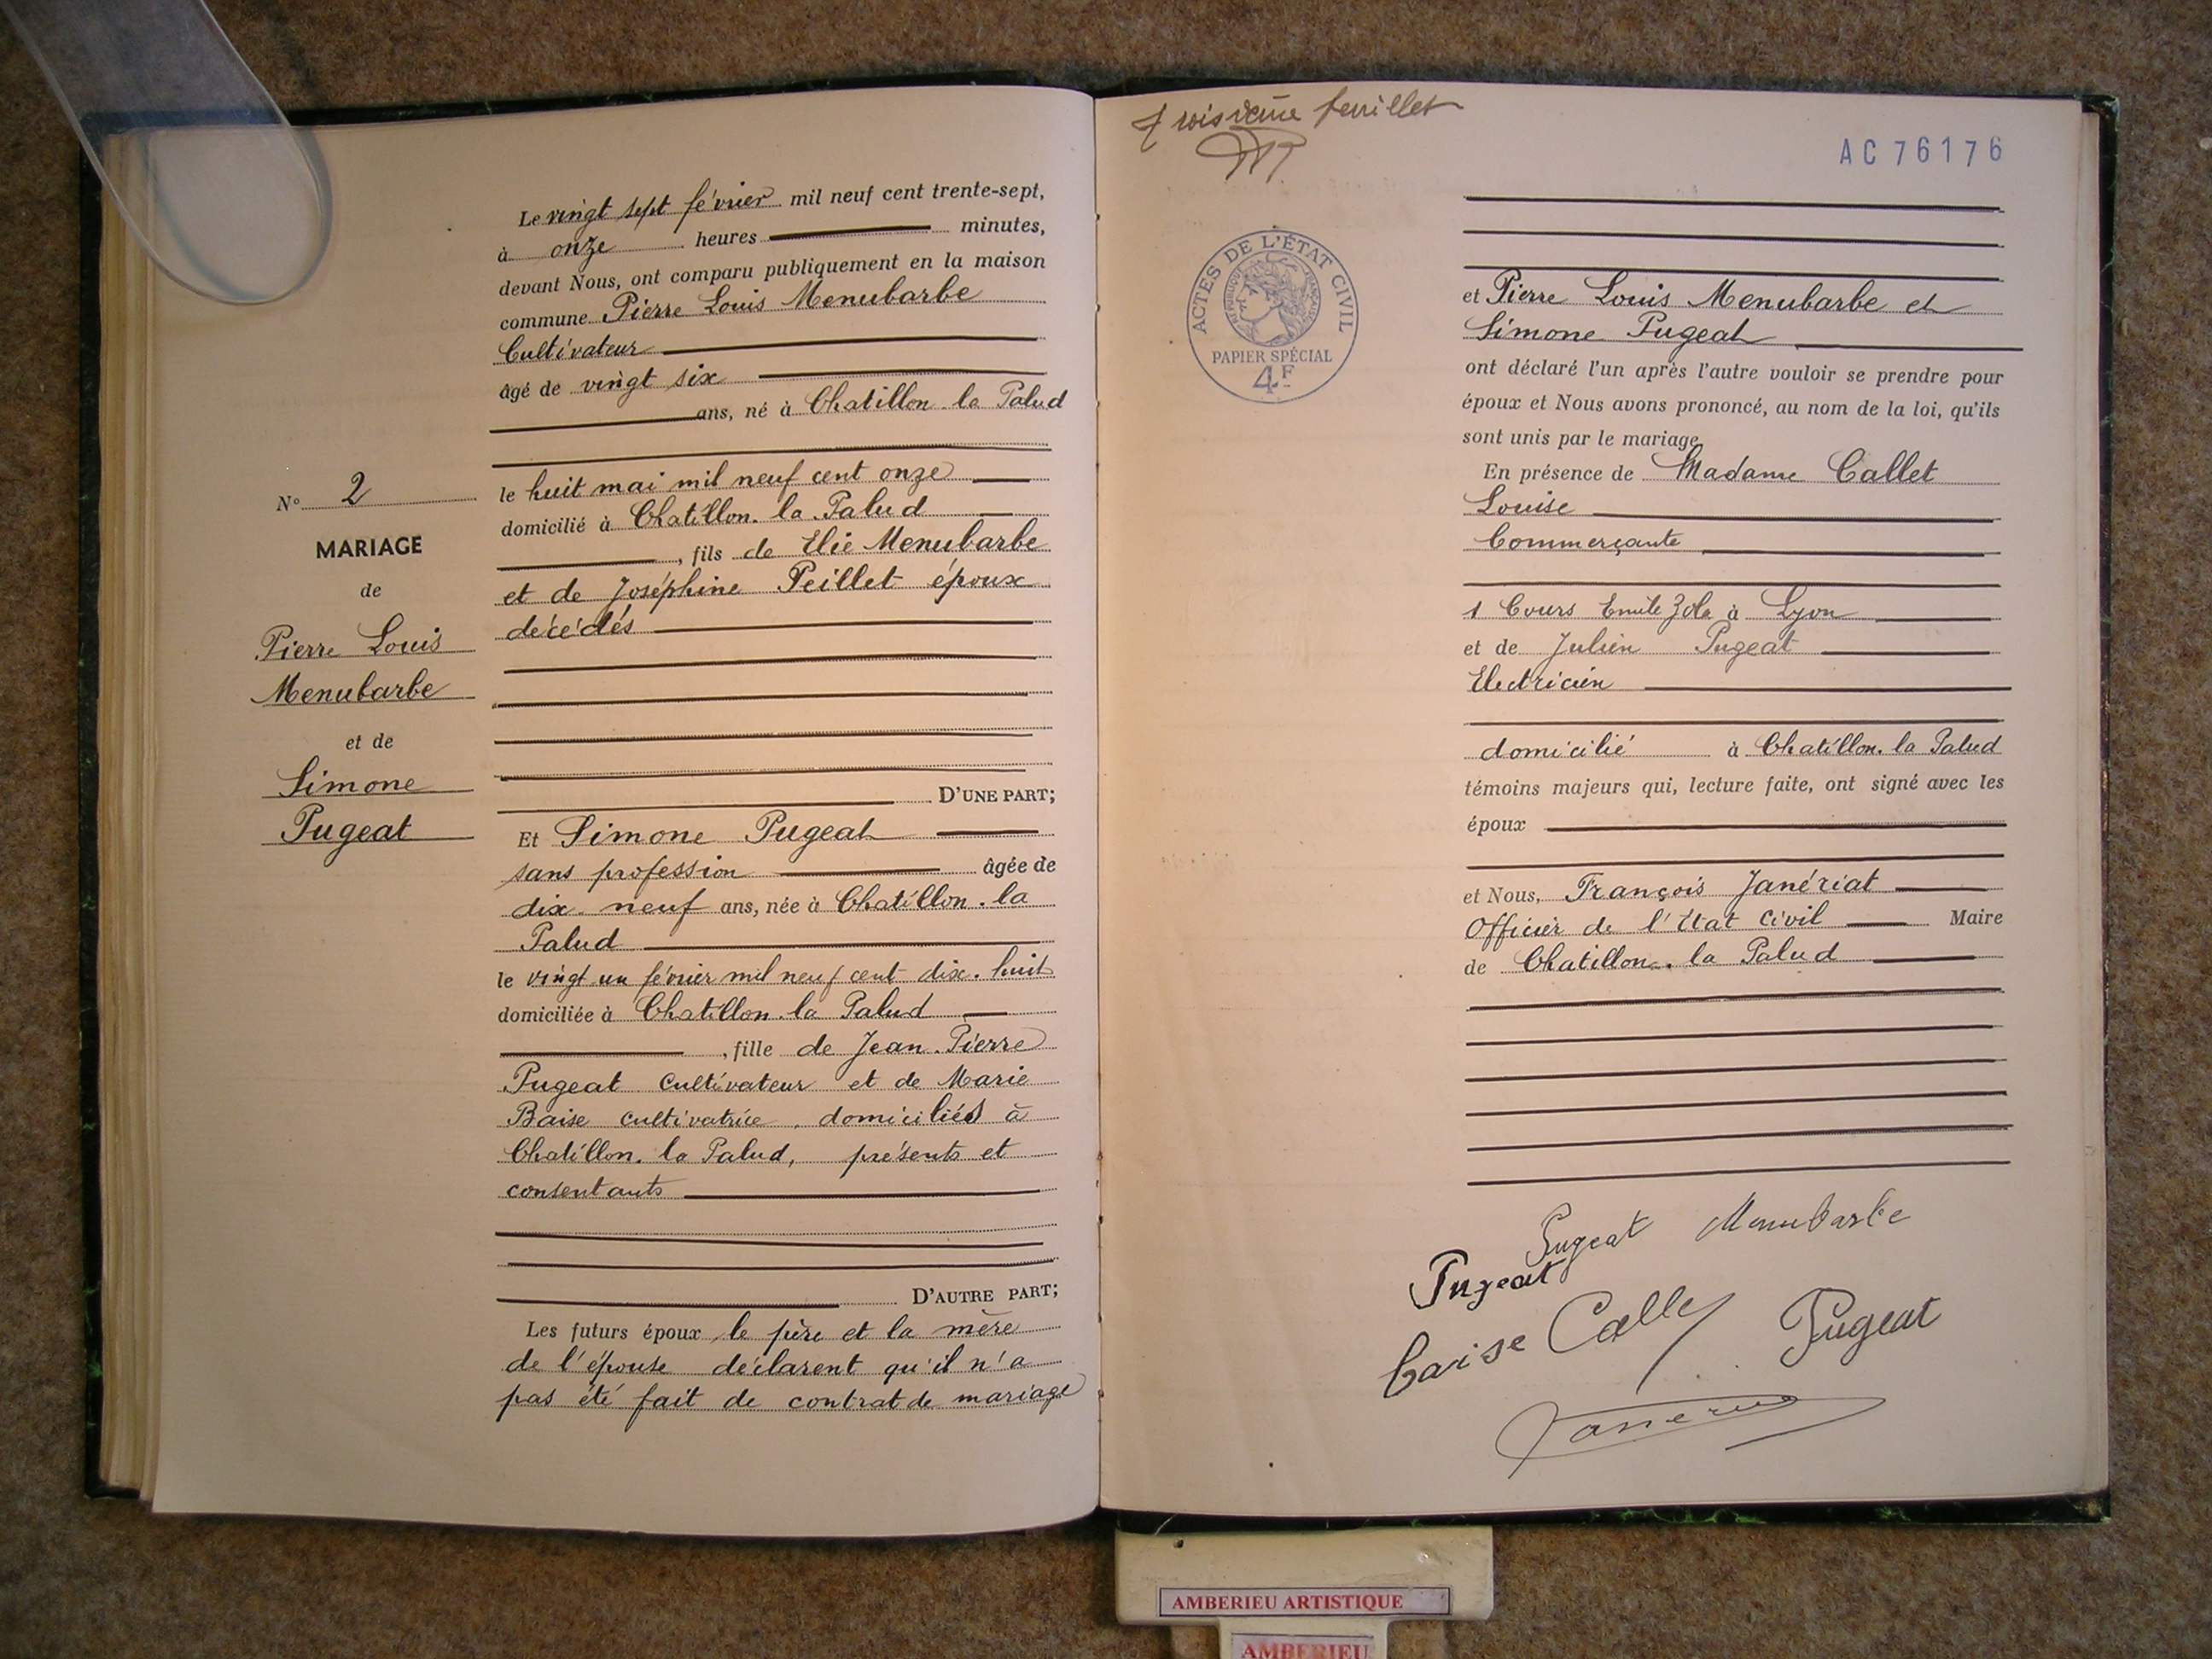 Le vingt sept février mil neuf cent trente-sept,
à onze heures minutes,
devant Nous, ont comparu publiquement en la maison
commune Pierre Louis Menubarbe
Cultivateur
âgé de vingt six
ans, né à Chatillon la Palud
le huit mai mil neuf cent onze
domicilié à Chatillon. la Palud
, fils de Elie Menubarbe
et de Joséphine Peillet époux
décédés
D'UNE PART;
N° 2
MARIAGE
de
Pierre Louis
Menubarbe
et de
Simone
Pugeat
Et Simone Pugeat
sans profession âgée de
dix. neuf ans, née à Chatillon. la
Palud
le vingt un février mil neuf cent dix. huit
domiciliée à Chatillon. la Palud
, fille de Jean. Pierre
Pugeat cultivateur et de Marie
Baise cultivatrice, domiciliés à
Chatillon. la Palud, présents et
consentants
D'AUTRE PART;
Les futurs époux, le père et la mère
de l'épouse déclarent qu'il n'a
pas été fait de contrat de mariage
troisième feuillet
AC 76176
ACTES DE L'ÉTAT CIVIL
RÉPUBLIQUE FRANÇAISE
PAPIER SPÉCIAL
4F
et Pierre Louis Menubarbe et
Simone Pugeat
ont déclaré l'un après l'autre vouloir se prendre pour
époux et Nous avons prononcé, au nom de la loi, qu'ils
sont unis par le mariage
En présence de Madame Callet
Louise
Commerçante
1 Cours Emile Zola à Lyon
et de Julien Pugeat
Electricien
domicilié à Chatillon. la Palud
témoins majeurs qui, lecture faite, ont signé avec les
époux
et Nous, François Janériat
Officier de l'Etat Civil Maire
de Chatillon. la Palud
Pugeat Menubarbe
Pugeat
baise Callet Pugeat
AMBERIEU ARTISTIQUE
AMBERIEU